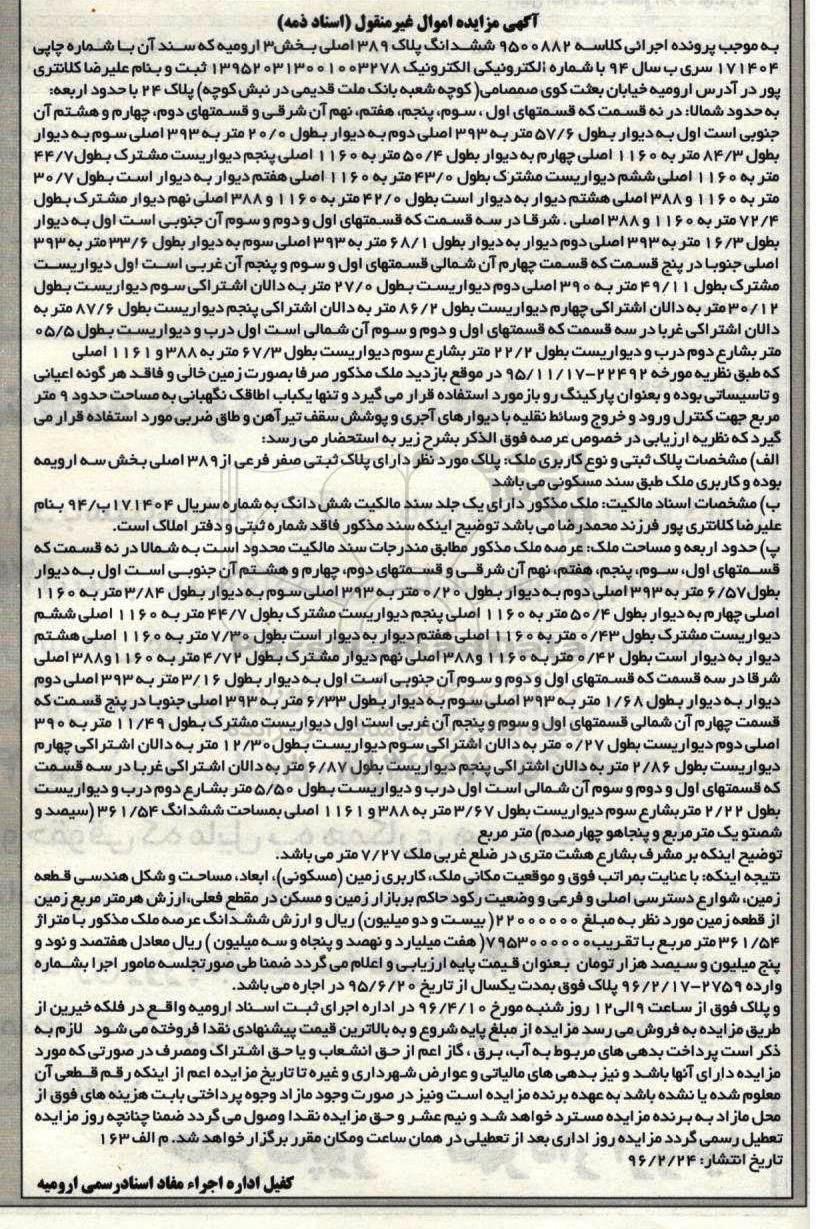 آگهی مزایده اموال غیرمنقول (اسناد ذمه)
به موجب پرونده اجرائی کلاسه ۹۵۰۰۸۸۲ ششدانگ پلاک ۳۸۹ اصلی بخش۳ ارومیه که سند آن با شماره چاپی
۱۷۱۴۰۴ سری ب سال ۹۴ با شماره الکترونیکی الکترونیک ۱۳۹۵۲۰۳۱۳۰۰۱۰۰۳۲۷۸ ثبت و بنام علیرضا کلانتری
پور در آدرس ارومیه خیابان بعثت کوی صمصامی( کوچه شعبه بانک ملت قدیمی در نبش کوچه) پلاک ۲۴ با حدود اربعه:
به حدود شمالا: در نه قسمت که قسمتهای اول ، سوم، پنجم، هفتم، نهم آن شرقی و قسمتهای دوم، چهارم و هشتم آن
جنوبی است اول به دیوار بطول ۵۷/۶ متر به ۳۹۳ اصلی دوم به دیوار بطول ۲۰/۰ متر به ۳۹۳ اصلی سوم به دیوار
بطول ۸۴/۳ متر به ۱۱۶۰ اصلی چهارم به دیوار بطول ۵۰/۴ متر به ۱۱۶۰ اصلی پنجم دیواریست مشترک بطول۴۴/۷
متر به ۱۱۶۰ اصلی ششم دیواریست مشترک بطول ۴۳/۰ متر به ۱۱۶۰ اصلی هفتم دیوار به دیوار است بطول ۳۰/۷
متر به ۱۱۶۰ و ۳۸۸ اصلی هشتم دیوار به دیوار است بطول ۴۲/۰ متر به ۱۱۶۰ و ۳۸۸ اصلی نهم دیوار مشترک بطول
۷۲/۴ متر به ۱۱۶۰ و ۳۸۸ اصلی . شرقا در سه قسمت که قسمتهای اول و دوم و سوم آن جنوبی است اول به دیوار
بطول ۱۶/۳ متر به ۳۹۳ اصلی دوم دیوار به دیوار بطول ۶۸/۱ متر به ۳۹۳ اصلی سوم به دیوار بطول ۳۳/۶ متر به ۳۹۳
اصلی جنوبا در پنج قسمت که قسمت چهارم آن شمالی قسمتهای اول و سوم و پنجم آن غربی است اول دیواریست
مشترک بطول ۴۹/۱۱ متر به ۳۹۰ اصلی دوم دیواریست بطول ۲۷/۰ متر به دالان اشتراکی سوم دیواریست بطول
۳۰/۱۲ متر به دالان اشتراکی چهارم دیواریست بطول ۸۶/۲ متر به دالان اشتراکی پنجم دیواریست بطول ۸۷/۶ متر به
دالان اشتراکی غربا در سه قسمت که قسمتهای اول و دوم و سوم آن شمالی است اول درب و دیواریست بطول ۰۵/۵
متر بشارع دوم درب و دیواریست بطول ۲۲/۲ متر بشارع سوم دیواریست بطول ۶۷/۳ متر به ۳۸۸ و ۱۱۶۱ اصلی
که طبق نظریه مورخه ۲۲۴۹۲-۹۵/۱۱/۱۷ در موقع بازدید ملک مذکور صرفا بصورت زمین خالی و فاقد هر گونه اعیانی
و تاسیساتی بوده و بعنوان پارکینگ رو باز مورد استفاده قرار می گیرد و تنها یکباب اطاقک نگهبانی به مساحت حدود ۹ متر
مربع جهت کنترل ورود و خروج وسائط نقلیه با دیوارهای آجری و پوشش سقف تیرآهن و طاق ضربی مورد استفاده قرار می
گیرد که نظریه ارزیابی در خصوص عرصه فوق الذکر بشرح زیر به استحضار می رسد:
الف) مشخصات پلاک ثبتی و نوع کاربری ملک: پلاک مورد نظر دارای پلاک ثبتی صفر فرعی از ۳۸۹ اصلی بخش سه ارویمه
بوده و کاربری ملک طبق سند مسکونی می باشد
ب) مشخصات اسناد مالکیت: ملک مذکور دارای یک جلد سند مالکیت شش دانگ به شماره سریال ۱۷۱۴۰۴ب/۹۴ بنام
علیرضا کلانتری پور فرزند محمدرضا می باشد توضیح اینکه سند مذکور فاقد شماره ثبتی و دفتر املاک است.
پ) حدود اربعه و مساحت ملک: عرصه ملک مذکور مطابق مندرجات سند مالکیت محدود است به شمالا در نه قسمت که
قسمتهای اول، سوم، پنجم، هفتم، نهم آن شرقی و قسمتهای دوم، چهارم و هشتم آن جنوبی است اول به دیوار
بطول ۶/۵۷ متر به ۳۹۳ اصلی دوم به دیوار بطول ۰/۲۰ متر به ۳۹۳ اصلی سوم به دیوار بطول ۳/۸۴ متر به ۱۱۶۰
اصلی چهارم به دیوار بطول ۵۰/۴ متر به ۱۱۶۰ اصلی پنجم دیواریست مشترک بطول ۴۴/۷ متر به ۱۱۶۰ اصلی ششم
دیواریست مشترک بطول ۰/۴۳ متر به ۱۱۶۰ اصلی هفتم دیوار به دیوار است بطول ۷/۳۰ متر به ۱۱۶۰ اصلی هشتم
دیوار به دیوار است بطول ۰/۴۲ متر به ۱۱۶۰ و۳۸۸ اصلی نهم دیوار مشترک بطول ۴/۷۲ متر به ۱۱۶۰ و۳۸۸ اصلی
شرقا در سه قسمت که قسمتهای اول و دوم و سوم آن جنوبی است اول به دیوار بطول ۳/۱۶ متر به ۳۹۳ اصلی دوم
دیوار به دیوار بطول ۱/۶۸ متر به ۳۹۳ اصلی سوم به دیوار بطول ۶/۳۳ متر به ۳۹۳ اصلی جنوبا در پنج قسمت که
قسمت چهارم آن شمالی قسمتهای اول و سوم و پنجم آن غربی است اول دیواریست مشترک بطول ۱۱/۴۹ متر به ۳۹۰
اصلی دوم دیواریست بطول ۰/۲۷ متر به دالان اشتراکی سوم دیواریست بطول ۱۲/۳۰ متر به دالان اشتراکی چهارم
دیواریست بطول ۲/۸۶ متر به دالان اشتراکی پنجم دیواریست بطول ۶/۸۷ متر به دالان اشتراکی غربا در سه قسمت
که قسمتهای اول و دوم و سوم آن شمالی است اول درب و دیواریست بطول ۵/۵۰ متر بشارع دوم درب و دیواریست
بطول ۲/۲۲ متر بشارع سوم دیواریست بطول ۳/۶۷ متر به ۳۸۸ و ۱۱۶۱ اصلی بمساحت ششدانگ ۳۶۱/۵۴ (سیصد و
شصتو یک مترمربع و پنجاهو چهارصدم) متر مربع
توضیح اینکه بر مشرف بشارع هشت متری در ضلع غربی ملک ۷/۲۷ متر می باشد.
نتیجه اینکه: با عنایت بمراتب فوق و موقعیت مکانی ملک، کاربری زمین (مسکونی)، ابعاد، مساحت و شکل هندسی قطعه
زمین، شوارع دسترسی اصلی و فرعی و وضعیت رکود حاکم بربازار زمین و مسکن در مقطع فعلی،ارزش هرمتر مربع زمین
از قطعه زمین مورد نظر به مبلغ ۲۲۰۰۰۰۰۰( بیست و دو میلیون) ریال و ارزش ششدانگ عرصه ملک مذکور با متراژ
۳۶۱/۵۴ متر مربع با تقریب۷۹۵۳۰۰۰۰۰۰( هفت میلیارد و نهصد و پنجاه و سه میلیون ) ریال معادل هفتصد و نود و
پنج میلیون و سیصد هزار تومان بعنوان قیمت پایه ارزیابی و اعلام می گردد ضمنا طی صورتجلسه مامور اجرا بشماره
وارده ۲۷۵۹-۹۶/۲/۱۷ پلاک فوق بمدت یکسال از تاریخ ۹۵/۶/۲۰ در اجاره می باشد.
و پلاک فوق از ساعت ۹ الی۱۲ روز شنبه مورخ ۹۶/۴/۱۰ در اداره اجرای ثبت اسناد ارومیه واقع در فلکه خیرین از
طریق مزایده به فروش می رسد مزایده از مبلغ پایه شروع و به بالاترین قیمت پیشنهادی نقدا فروخته می شود لازم به
ذکر است پرداخت بدهی های مربوط به آب، برق ، گاز اعم از حق انشعاب و یا حق اشتراک ومصرف در صورتی که مورد
مزایده دارای آنها باشد و نیز بدهی های مالیاتی و عوارض شهرداری و غیره تا تاریخ مزایده اعم از اینکه رقم قطعی آن
معلوم شده یا نشده باشد به عهده برنده مزایده است ونیز در صورت وجود مازاد وجوه پرداختی بابت هزینه های فوق از
محل مازاد به برنده مزایده مسترد خواهد شد و نیم عشر و حق مزایده نقدا وصول می گردد ضمنا چنانچه روز مزایده
تعطیل رسمی گردد مزایده روز اداری بعد از تعطیلی در همان ساعت ومکان مقرر برگزار خواهد شد. م الف ۱۶۳
تاریخ انتشار: ۹۶/۲/۲۴
کفیل اداره اجراء مفاد اسنادرسمی ارومیه